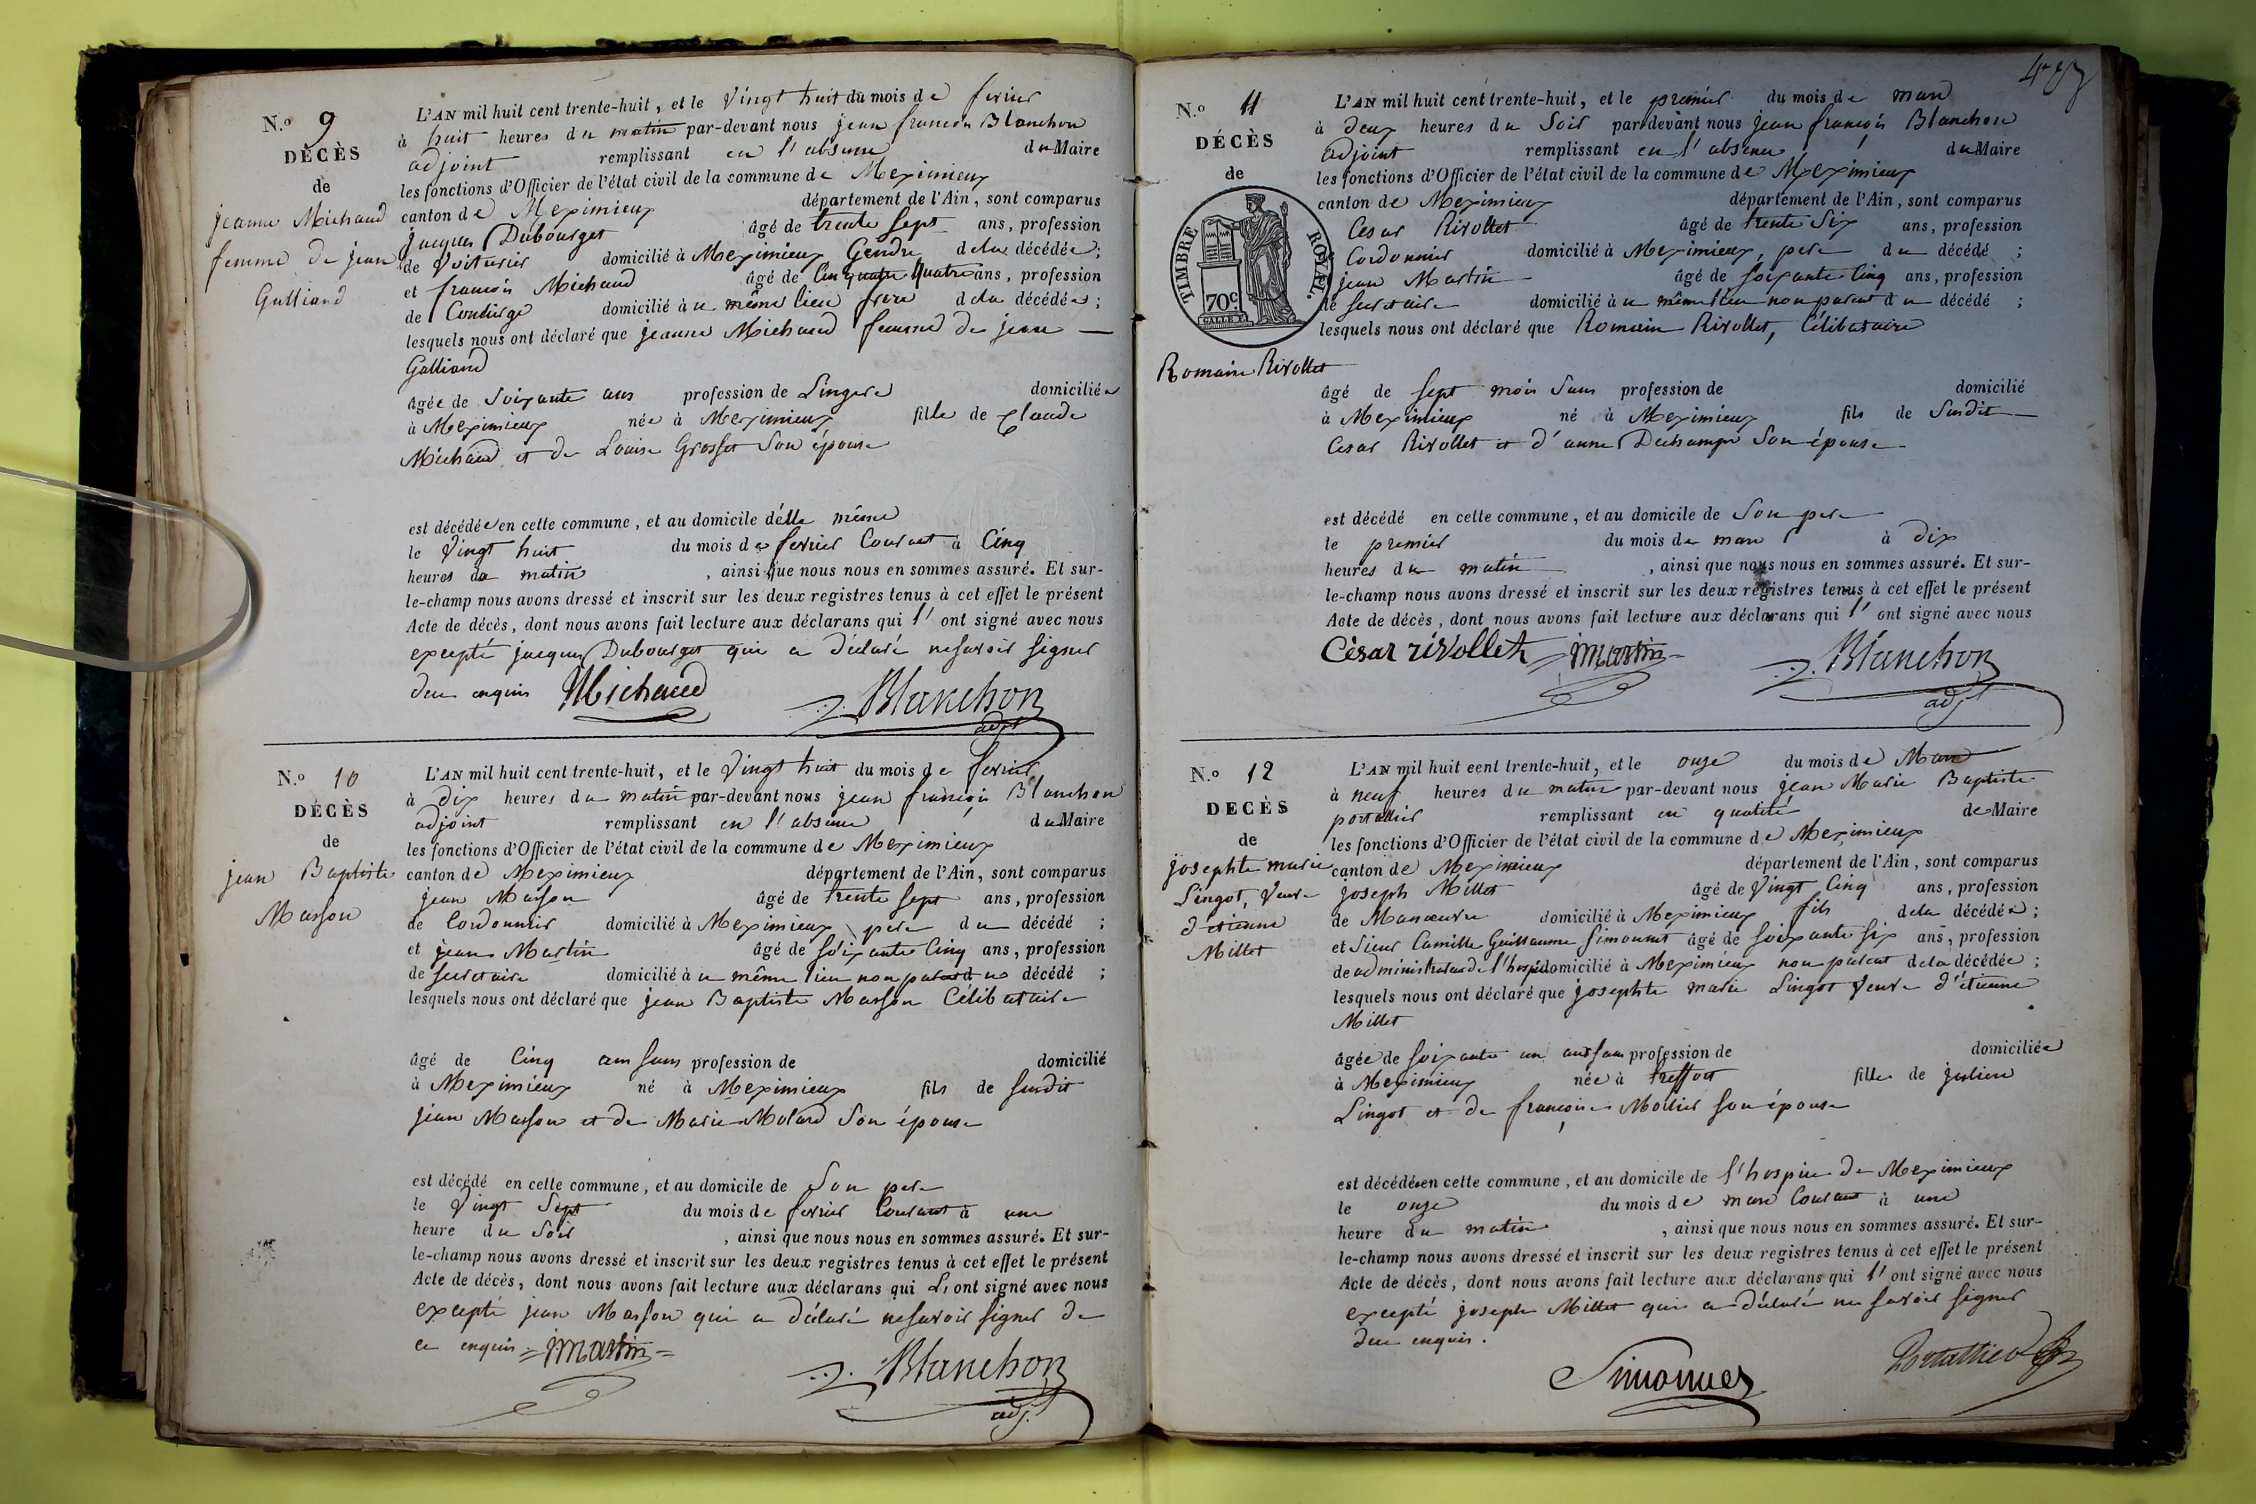 N.o 9
DÉCÈS
de
jeanne Michaud
femme de jean
Galliand
L'AN mil huit cent trente-huit, et le Vingt huit du mois de fevrier
à huit heures du matin par-devant nous jean françois Blanchon
adjoint remplissant en l'absence du Maire
les fonctions d'Officier de l'état civil de la commune de Meximieux
canton de Meximieux département de l'Ain, sont comparus
jacques Dubourget âgé de trente sept ans, profession
de Voiturier domicilié à Meximieux Gendre dela décédée;
et françois Michaud âgé de Cinquante quatre ans, profession
de Concierge domicilié à u même lieu frere dela décédée;
lesquels nous ont déclaré que jeanne Michaud femme de jean —
Galliand
âgée de Soixante ans profession de Lingere domiciliée
à Meximieux née à Meximieux fille de Claude
Michaud et de Louise Grosset Son épouse
est décédée en cette commune, et au domicile d'elle même
le Vingt huit du mois de fevrier Courant à Cinq
heures du matin, ainsi que nous nous en sommes assuré. Et sur-
le-champ nous avons dressé et inscrit sur les deux registres tenus à cet effet le présent
Acte de décès, dont nous avons fait lecture aux déclarans qui l' ont signé avec nous
excepté jacques Dubourget qui a déclaré ne savoir signer
deu enquis Michaud Blanchon
adjt
N.o 10
DÉCÈS
de
jean Baptiste
Masson
L'AN mil huit cent trente-huit, et le Vingt huit du mois de fevrier
à dix heures du matin par-devant nous jean françois Blanchon
adjoint remplissant en l'absence du Maire
les fonctions d'Officier de l'état civil de la commune de Meximieux
canton de Meximieux département de l'Ain, sont comparus
jean Masson âgé de trente sept ans, profession
de Cordonnier domicilié à Meximieux pere du décédé;
et jean Martin âgé de soixante Cinq ans, profession
de secretaire domicilié à u même lieu non parent du décédé;
lesquels nous ont déclaré que jean Baptiste Masson Célibataire
âgé de Cinq ans sans profession de domicilié
à Meximieux né à Meximieux fils de susdit
jean Masson et de Marie Molard Son épouse
est décédé en cette commune, et au domicile de Son pere
le Vingt Sept du mois de fevrier Courant à une
heure du Soir, ainsi que nous nous en sommes assuré. Et sur-
le-champ nous avons dressé et inscrit sur les deux registres tenus à cet effet le présent
Acte de décès, dont nous avons fait lecture aux déclarans qui L' ont signé avec nous
excepté jean Masson qui a déclaré ne savoir signer de
ce enquis jmartin Blanchon
adj.
403
N.o 11
DÉCÈS
de
TIMBRE ROYAL.
70c
Romain Rivollet
L'AN mil huit cent trente-huit, et le premier du mois de mars
à deux heures du Soir par-devant nous jean françois Blanchon
adjoint remplissant en l'absence du Maire
les fonctions d'Officier de l'état civil de la commune de Meximieux
canton de Meximieux département de l'Ain, sont comparus
Cesar Rivollet âgé de trente Six ans, profession
Cordonnier domicilié à Meximieux, pere du décédé;
jean Martin âgé de soixante Cinq ans, profession
de secretaire domicilié à u même lieu non parent du décédé;
lesquels nous ont déclaré que Romain Rivollet, Célibataire
âgé de sept mois Sans profession de domicilié
à Meximieux né à Meximieux fils de Susdit —
Cesar Rivollet et d'anne Duchamp Son épouse
est décédé en cette commune, et au domicile de Son pere
le premier du mois de mars à dix
heures du matin, ainsi que nous nous en sommes assuré. Et sur-
le-champ nous avons dressé et inscrit sur les deux registres tenus à cet effet le présent
Acte de décès, dont nous avons fait lecture aux déclarans qui l' ont signé avec nous
Cèsar rivollet jmartin Blanchon
adj
N.o 12
DÉCÈS
de
josephte marie
Lingot, Veuve
d'etienne
Millet
L'AN mil huit cent trente-huit, et le onze du mois de Mars
à neuf heures du matin par-devant nous jean Marie Baptiste
portallier remplissant en qualité de Maire
les fonctions d'Officier de l'état civil de la commune de Meximieux
canton de Meximieux département de l'Ain, sont comparus
joseph Millet âgé de Vingt Cinq ans, profession
de Manœuvre domicilié à Meximieux fils dela décédée;
et Sieur Camille Guillaume Simonnet âgé de soixante six ans, profession
de administrateur de l'hospice domicilié à Meximieux non parent dela décédée;
lesquels nous ont déclaré que josephte marie Lingot Veuve d'étienne
Millet
âgée de soixante un ans sans profession de domiciliée
à Meximieux née à treffort fille de julien
Lingot et de françoise Mollier son épouse
est décédée en cette commune, et au domicile de l'hospice de Meximieux
le onze du mois de mars Courant à une
heure du matin, ainsi que nous nous en sommes assuré. Et sur-
le-champ nous avons dressé et inscrit sur les deux registres tenus à cet effet le présent
Acte de décès, dont nous avons fait lecture aux déclarans qui l' ont signé avec nous
excepté joseph Millet qui a déclaré ne savoir signer
deu enquis.
Simonnet Portallier